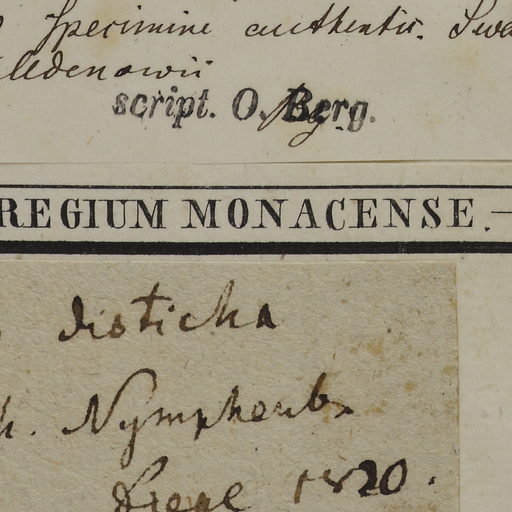 Specimine authentic. Swa
lldenowii
script. O. Berg.
REGIUM MONACENSE.—
disticha
h. Nympheub.
1820.